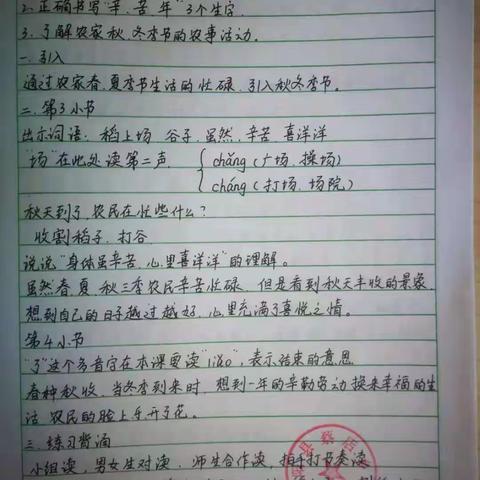 2. 正确书写"辛、苦、年"3个生字.
3. 了解农家秋、冬季节的农事活动.
一. 引入
通过农家春、夏季节生活的忙碌. 引入秋冬季节.
二. 第3小节
出示词语: 稻上场 谷子 虽然 辛苦 喜洋洋
"场"在此处读第二声 chǎng (广场、操场)
cháng (打场、场院)
秋天到了, 农民在忙些什么?
收割稻子、打谷
说说"身体虽辛苦, 心里喜洋洋"的理解.
虽然春、夏、秋三季农民辛苦忙碌. 但是看到秋天丰收的景象.
想到自己的日子越过越好, 心里充满了喜悦之情.
第4小节
"了"这个多音字在本课要读"liǎo", 表示结束的意思
春种秋收, 当冬季到来时. 想到一年的辛勤劳动换来幸福的生
活. 农民的脸上乐开了花.
三. 练习背诵
小组读, 男女生对读. 师生合作读, 拍手打节奏读
县蔡店